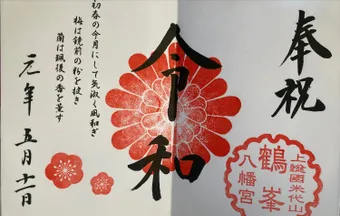 奉祝
令和
初春の令月にして気淑く風和ぎ
梅は鏡前の粉を披き
蘭は珮後の香を薫す
元年五月十一日
上総國米代山
鶴峯
八幡宮